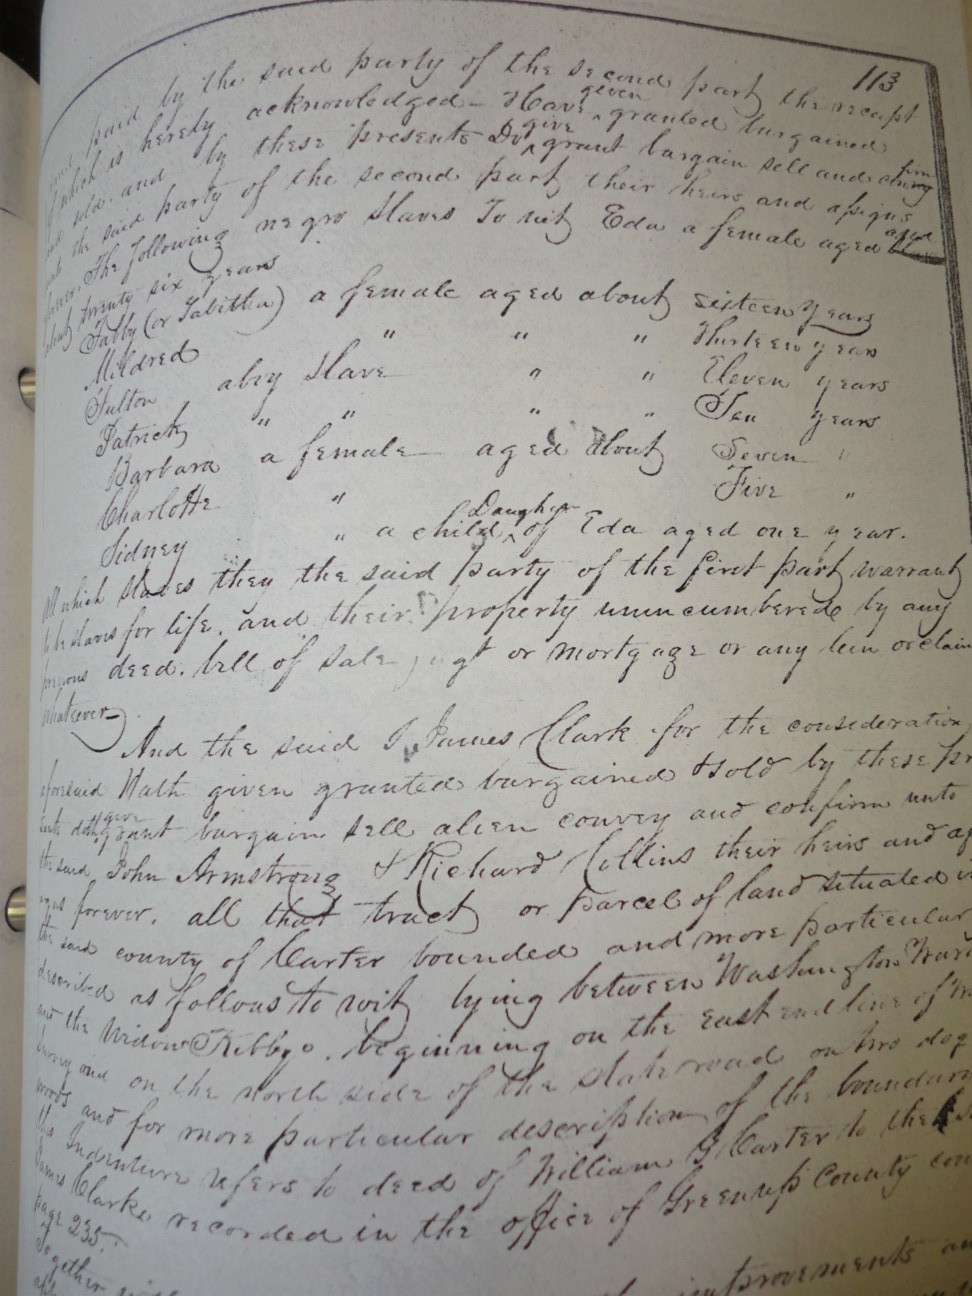 113
paid by the said party of the second part the receipt
of which is hereby acknowledged - Have given granted bargained
and sold and by these presents Do give grant bargain sell and
the said party of the second part their heirs and assigns
forever. The following negro slaves To wit Eda a female aged
about twenty six years
Tabby (or Tabitha) a female aged about sixteen years
Mildred " " " Thirteen years
Fulton a boy slave " " Eleven years
Patrick " " " " Ten years
Barbara a female aged about Seven "
Charlotte " Five "
Sidney " a child Daughter of Eda aged one year.
All which slaves they the said party of the first part warrant
to be slaves for life. and their property unincumbered by any
previous deed. bill of sale or mortgage or any lien or claim
whatever
And the said James Clark for the consideration
aforesaid Hath given granted bargained & sold by these
doth give grant bargain sell alien convey and confirm unto
the said John Armstrong & Richard Collins their heirs and
forever. all that tract or parcel of land situated
the said county of Carter bounded and more particular
described as follows to wit lying between Washington
and the Widow Kibbys. beginning on the East end line of
survey and on the north side of the state road on two dog
woods and for more particular description of the
this Indenture refers to deed of William G Carter to the
James Clark recorded in the office of Greenup County
page 235.
Together improvements